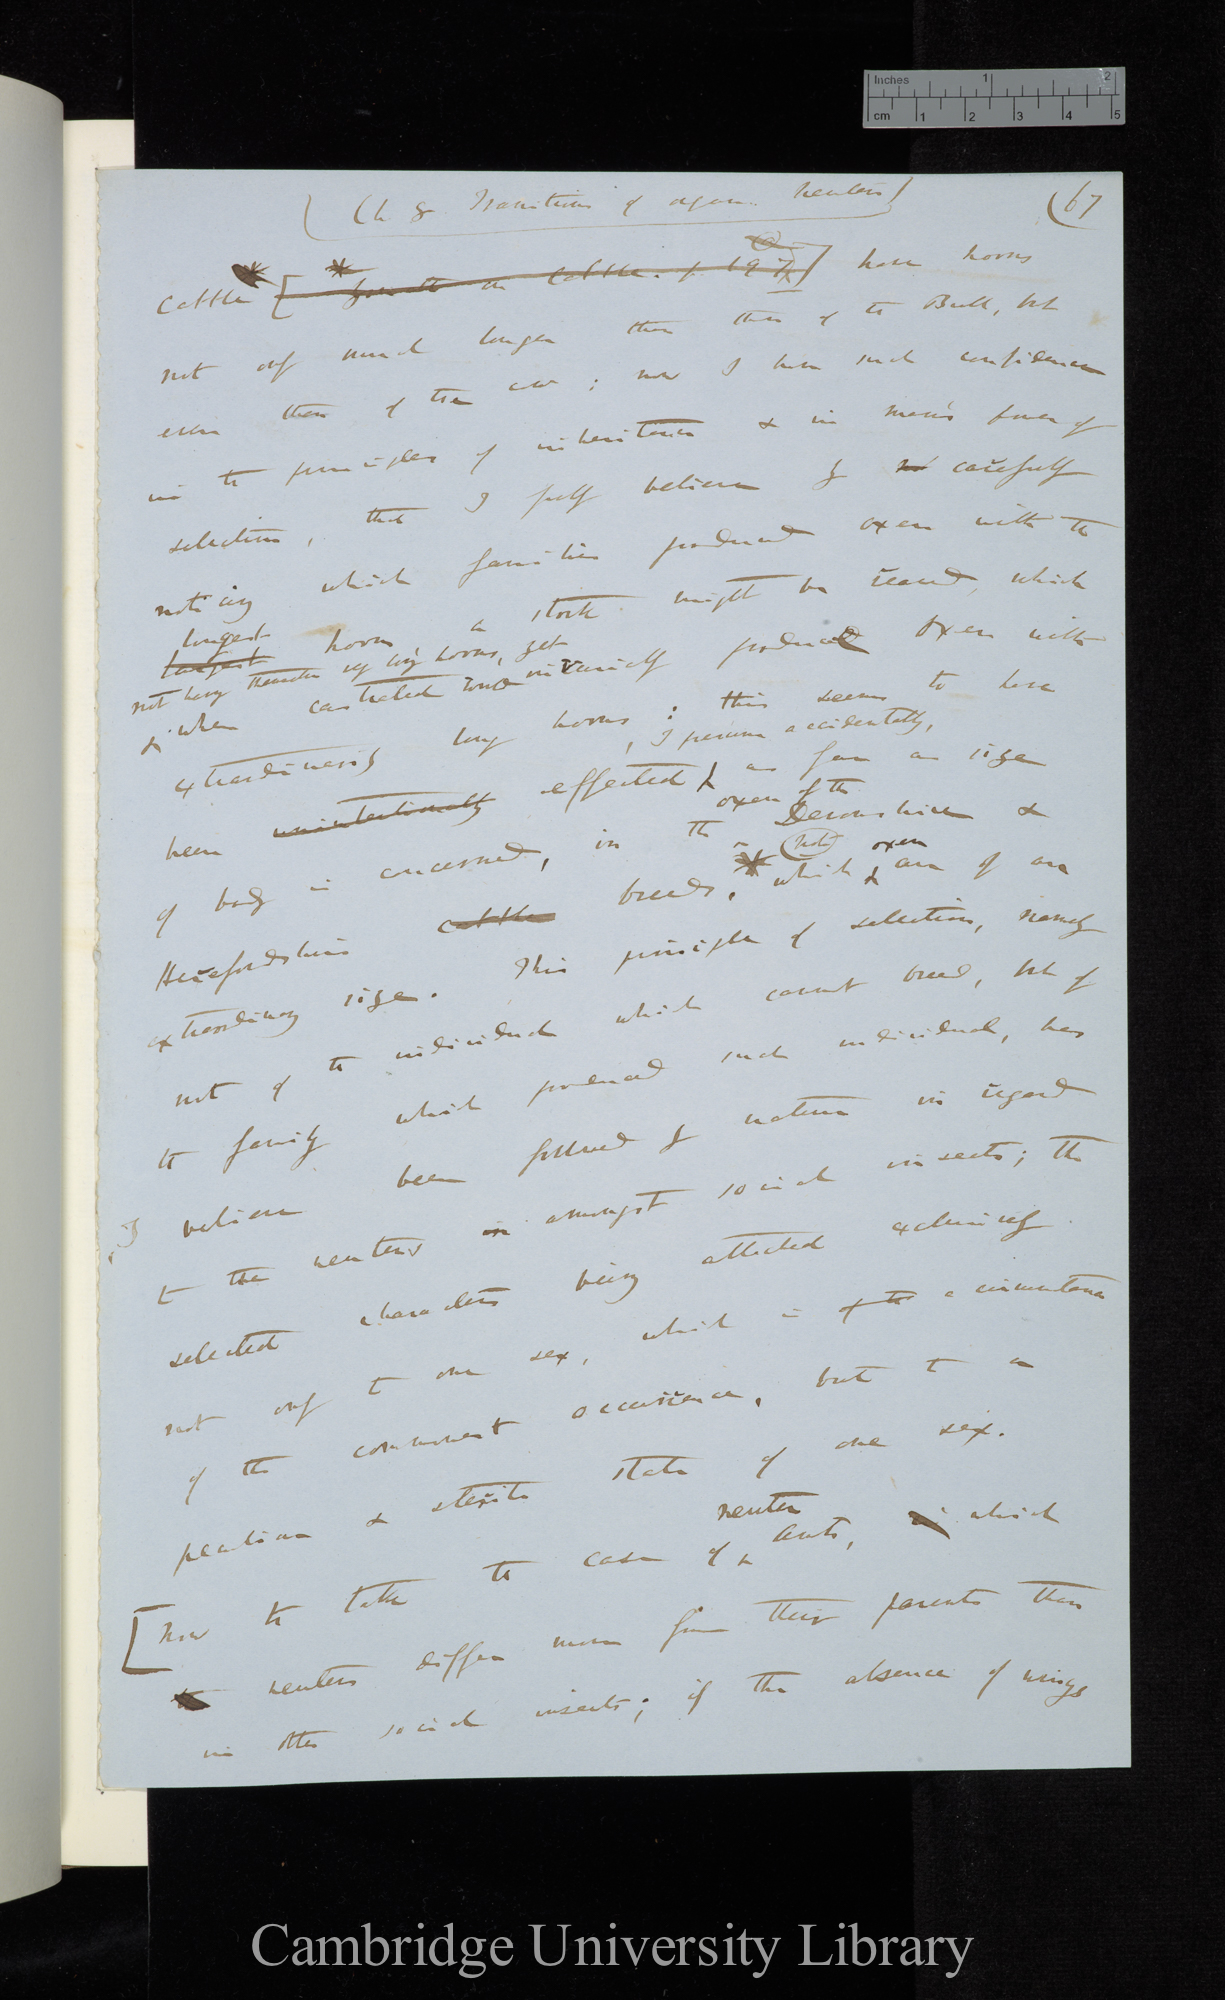 Inches 1 2
cm 1 2 3 4 5
(Ch 8. Transitions of organs. Neuters)
(67
cattle [Youatt on Cattle. p. 197] have horns
not only much longer than those of the Bull, but
even than of the cow; now I have such confidence
in the principles of inheritance & in man's power of
selection, that I fully believe by carefully
noticing which families produced oxen with the
longest
largest horns a stock might be reared, which
not having themselves very long horns, yet
& when castrated invariably produced oxen with
extraordinarily long horns; this seems to have
, I presume accidentally,
been unintentionally effected as far as size
oxen of the
of body is concerned, in the Devonshire &
(note) oxen
Herefordshire cattle breeds, which are of an
extraordinary size. This principle of selection, namely
not of the individual which cannot breed, but of
the family which produced such individual, has
I believe been followed by nature in regard
to the neuters in amongst social insects; the
selected characters being attached exclusively
not only to one sex, which is of the a circumstance
of the commonest occurrence, but to a
peculiar & sterile state of one sex.
neuter
[Now to take the case of ants, in which
the neuters differ more from their parents than
in other social insects; if the absence of wings
Cambridge University Library